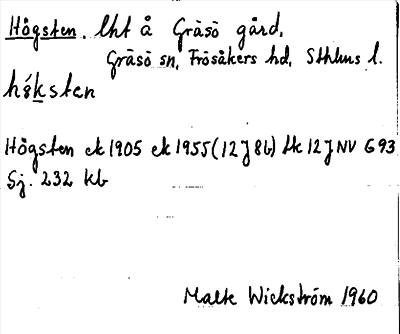 Högsten. lht å Gräsö gård,
Gräsö sn, Frösåkers hd, Sthlms l.
hö́ksten
Högsten ek 1905 ek 1955 (12 J 8b) tk 12 J NV G93
Sj. 232 kb
Malte Wickström 1960